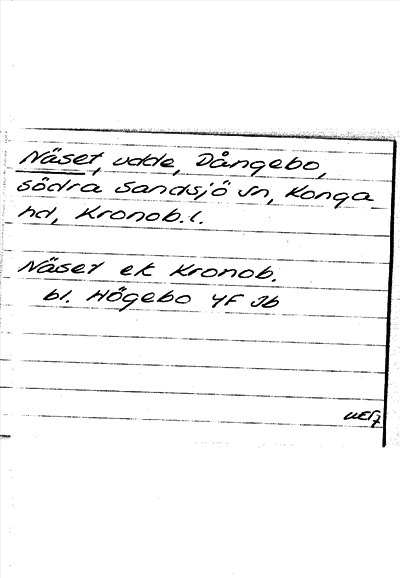 Näset, udde, Dångebo,
södra Sandsjö sn, Konga
hd, Kronob.l.
Näset ek Kronob.
bl. Högebo 4F Jb